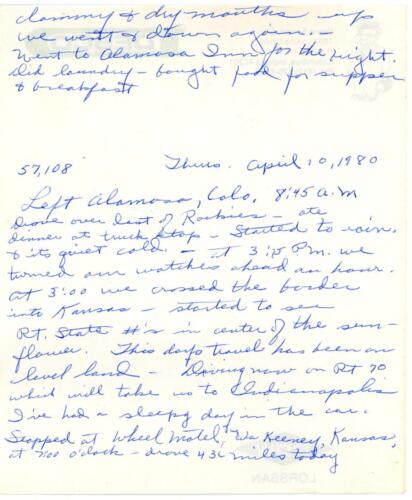 clammy & dry mouths up
we went & down again. -
Went to Alamosa Inn for the night.
Did laundry - bought food for supper
& breakfast
57,108 Thurs. April 10, 1980
Left Alamosa, Colo. 8:45 A.M
Drove over last of Rockies - ate
dinner at truck stop - Started to rain.
& its quiet cold. - at 3:15 P.m. we
turned our watches ahead an hour.
at 3:00 we crossed the border
into Kansas - started to see
Rt. State #'s in center of the sun-
flower. This days travel has been on
level land - Driving now on Rt 70
which will take us to Indianapolis
I've had a sleepy day in the car.
Stopped at Wheel Motel, Wa Keeney, Kansas,
at 7:00 o'clock - drove 436 miles today
LORSBAN